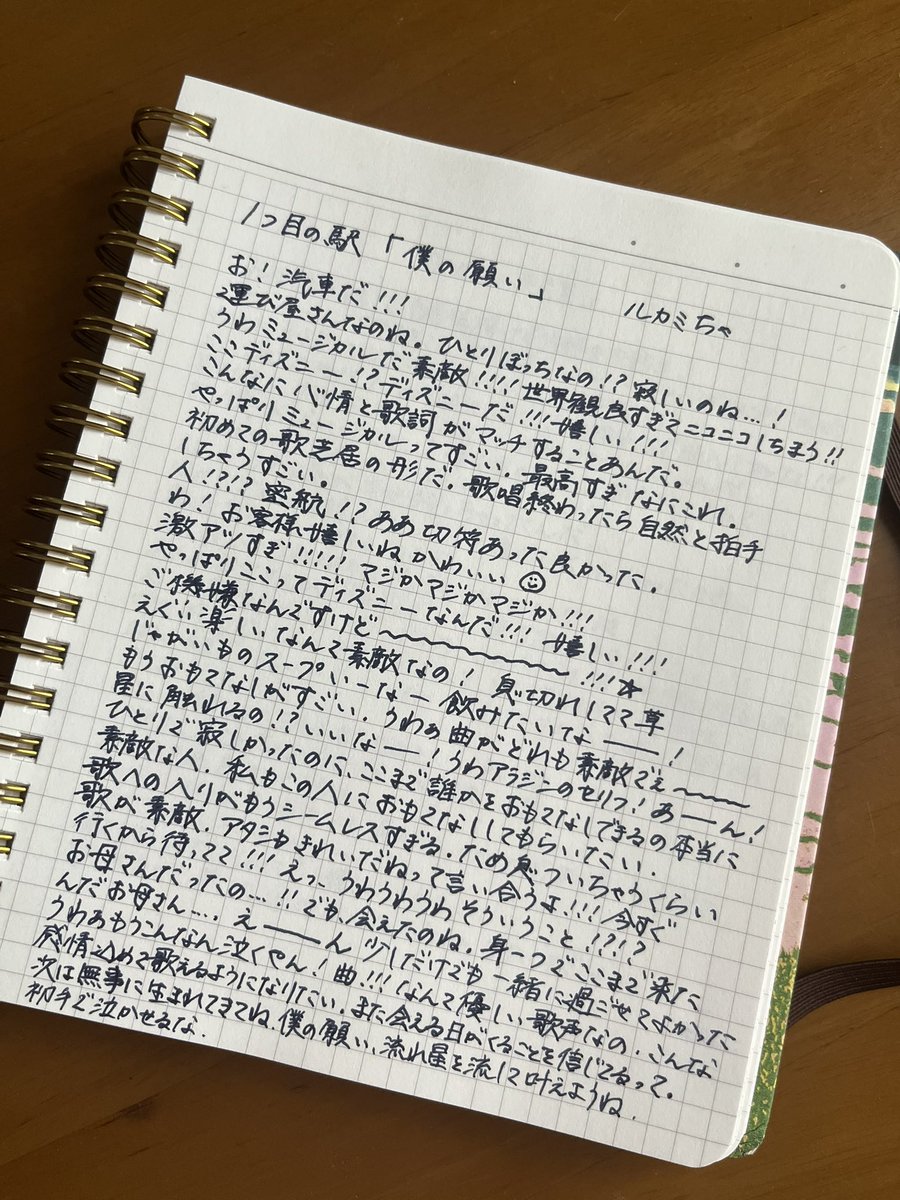 1つ目の駅「僕の願い」
ルカミちゃ
お！汽車だ!!!
運び屋さんなのね。ひとりぼっちなの!?寂しいのね…！
うわミュージカルだ素敵!!!!世界観良すぎてニコニコしちまう!!
ここディズニー!?ディズニーだ!!!嬉しい!!!
こんなに心情と歌詞がマッチすることあんだ。
やっぱりミュージカルってすごい。最高すぎなにこれ。
初めての歌芝居の形だ。歌唱終わったら自然と拍手
しちゃうすごい。
人!?!?密航!?ああ切符あった良かった。
わ！お客様嬉しいねかわいい☺
激アツすぎ!!!!!マジかマジかマジか!!!
やっぱりここってディズニーなんだ!!!嬉しい!!!
ご機嫌なんですけど〜〜〜〜〜〜!!!☆
えぐい楽しいなんて素敵なの！息切れしてて草
じゃがいものスープいーなー飲みたいなーー！
もうおもてなしがすごい。うわぁ曲がどれも素敵でぇ〜〜〜
星に触れるの!?いいなー！うわアラジンのセリフ！あーーん！
ひとりで寂しかったのに、ここまで誰かをおもてなしできるの本当に
素敵な人。私もこの人におもてなししてもらいたい。
歌への入りがもうシームレスすぎる。ため息ついちゃうくらい
歌が素敵。アタシもきれいだねって言い合うよ!!!今すぐ
行くから待ってて!!!えっ、うわうわうわそういうこと!?!?
お母さんだったの…!!でも、会えたのね。身一つでここまで来た
んだお母さん…。えーーん少しだけでも一緒に過ごせてよかった
うわぁもうこんなん泣くやん！曲!!!なんて優しい歌声なの。こんな
感情込めて歌えるようになりたい。また会える日がくることを信じてるって。
次は無事に生まれてきてね。僕の願い、流れ星を流して叶えようね。
初手で泣かせるな。